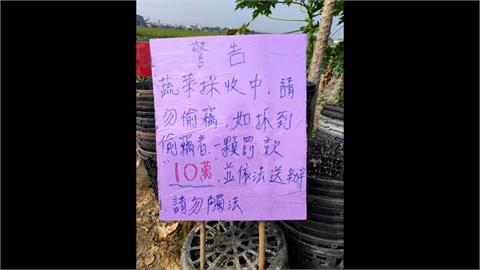 警告
蔬菜採收中，請
勿偷竊，如抓到
偷竊者一顆罰款
"10萬"，並依法送辦
請勿觸法